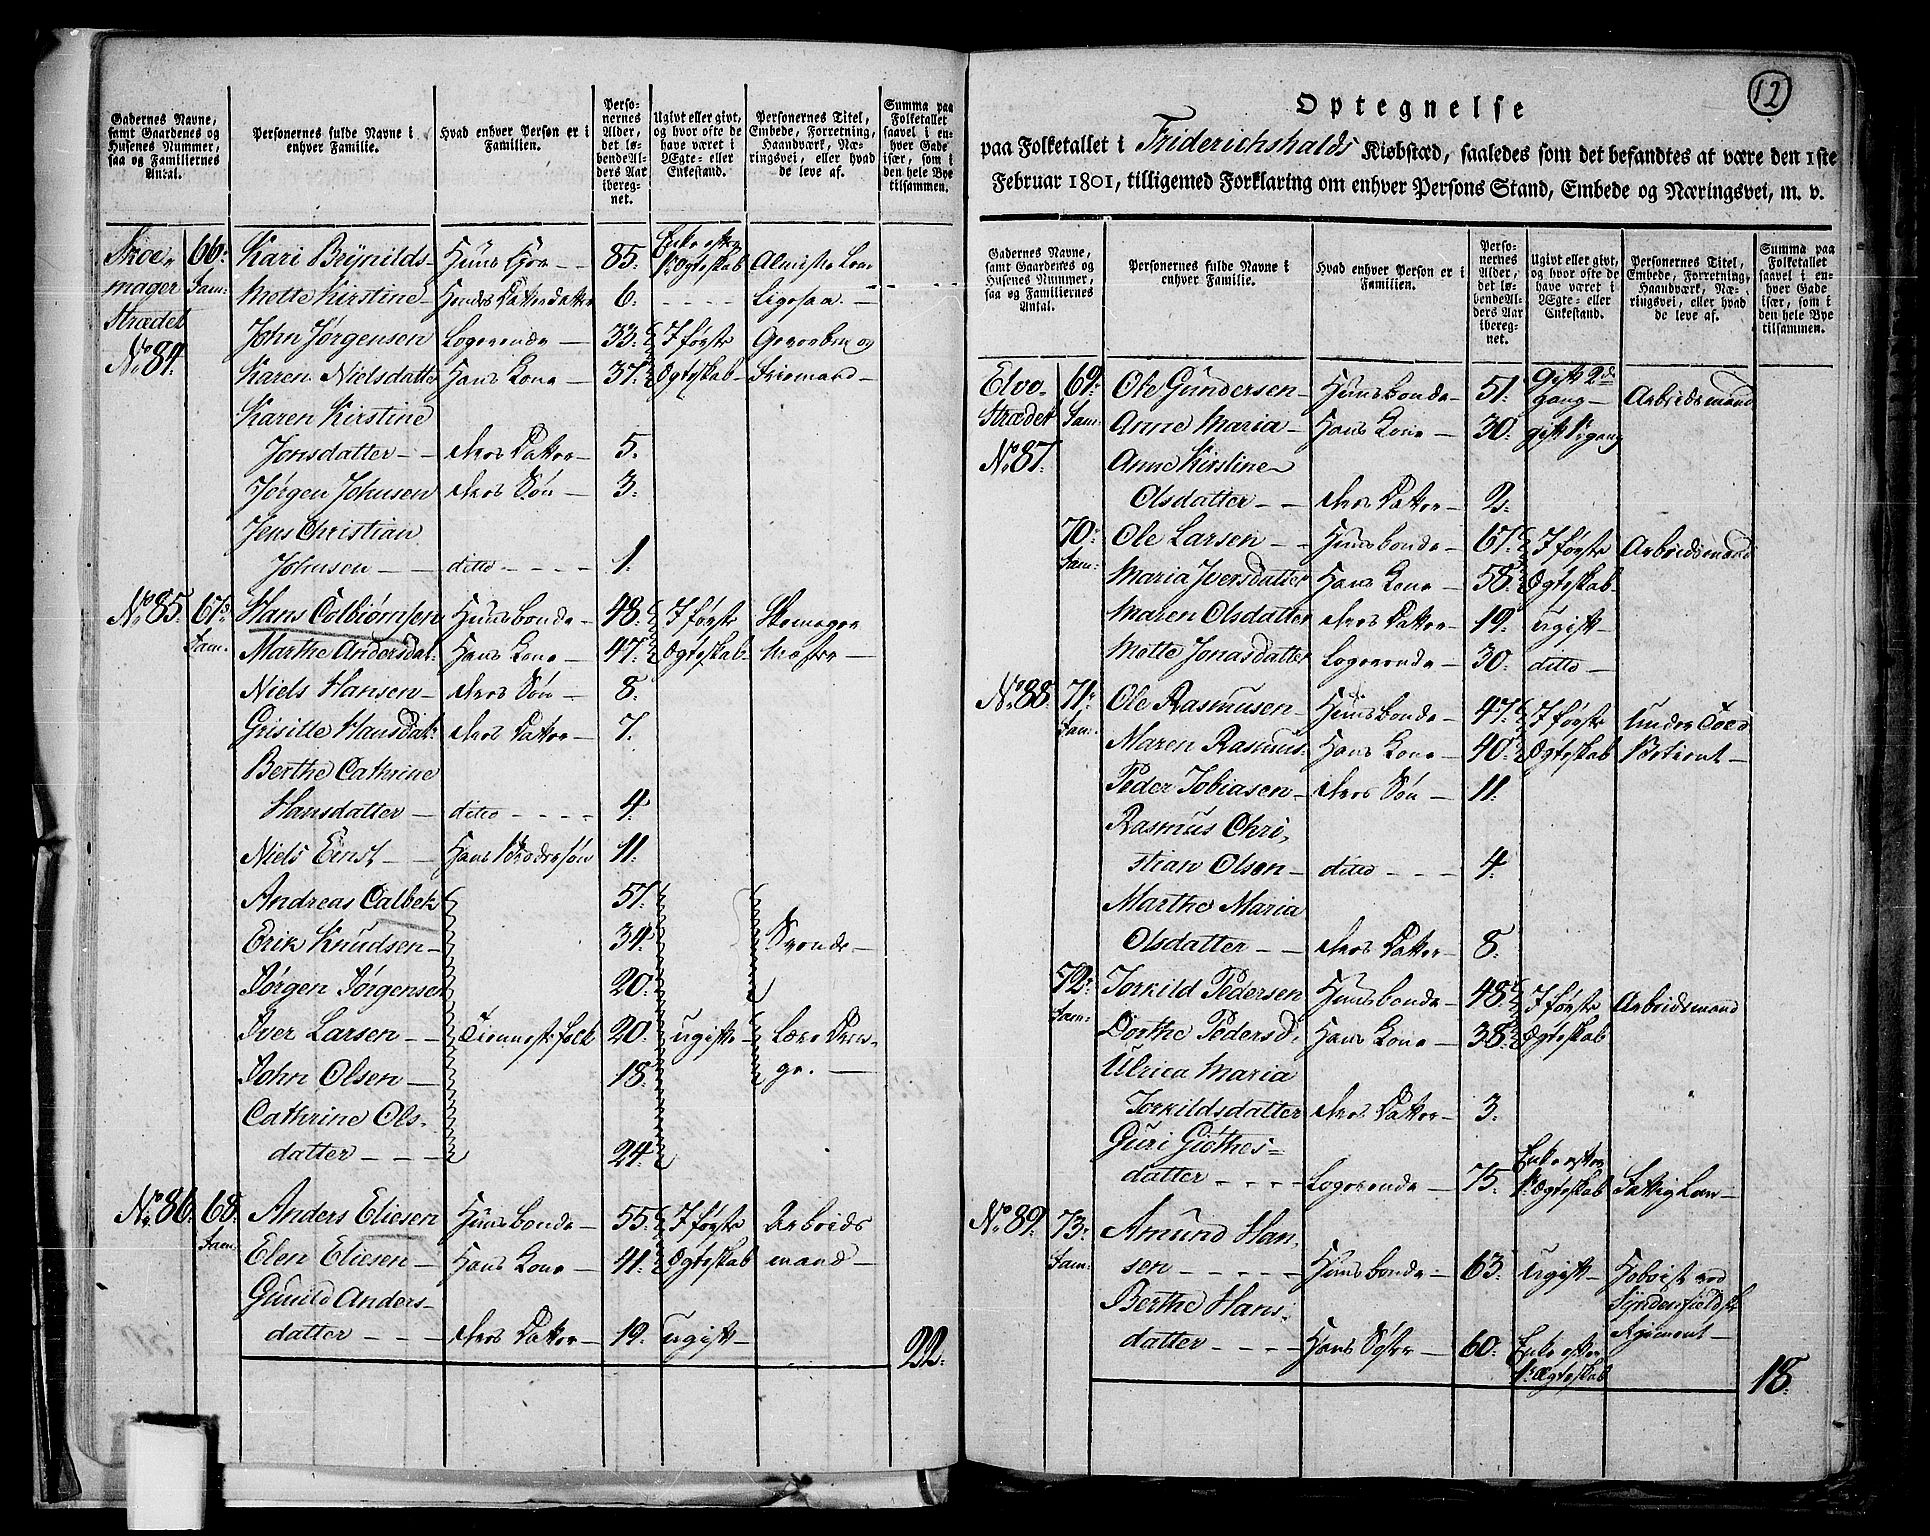 Gadernes Navne, samt Gaardenes og Husenes Nummer, saa og Familiernes Antal.
Personernes fulde Navne i enhver Familie.
Hvad enhver Person er i Familien.
Personernes Alder, det løbende Alders Aar iberegnet.
Ugivt eller givt, og hvor ofte de have været i Ægte- eller Enkestand.
Personernes Titel, Embede, Forretning, Haandværk, Næringsvei, eller hvad de leve af.
Summa paa Folketallet saavel i enhver Gade især, som i den hele Bye tilsammen.
Skoe- 66: Kari Beÿnilds- Huus Kone - 85. Enke efter 1te Ægteskab Almisse Lem
mager Fam: Mette Kirstine - Hendes Datterdatter 6. - - - - Ligesaa -
Strædet John Jørgensen Logerende - 33. I første Graver og
No. 84. Karen Nielsdatter Hans Kone - 37. Ægteskab - Friemand -
Karen Kirstine
Jonsdatter - - deres Datter - 5.
Jørgen Johnsen deres Søn - 3.
Jens Christian
Johnsen - - ditto - - - - 1.
No. 85. 67: Hans Colbiørnsen Huusbonde - 48. I første Skomager
Fam. Marthe Andersdat: Hans Kone - 47. Ægteskab Mester -
Niels Hansen - deres Søn - 8.
Grisille Hansdat: deres Datter - 7.
Berthe Cathrine
Hansdatter - ditto - - - - 4.
Niels Ernst - - Hans Brodersøn 11.
Andreas Calbek 51.
Erik Knudsen - 34. Svende -
Jørgen Jørgensen 20.
Iver Larsen - - Tiennestefolk 20. ugifte - Lære Dren-
John Olsen - 18. ge. -
Cathrine Ols-
datter - - - 24.
No. 86. 68. Anders Eliesen Huusbonde - 55. I første Arbeids
Fam. Elen Eliesen - Hans Kone - 41. Ægteskab mand -
Gunild Anders-
datter - - - deres Datter - 19. ugift -
22.
12
Optegnelse
paa Folketallet i Friderichshalds Kiøbstæd, saaledes som det befandtes at være den 1ste
Februar 1801, tilligemed Forklaring om enhver Persons Stand, Embede og Næringsvei, m. v.
Gadernes Navne, samt Gaardenes og Husenes Nummer, saa og Familiernes Antal.
Personernes fulde Navne i enhver Familie.
Hvad enhver Person er i Familien.
Personernes Alder, det løbende Alders Aar iberegnet.
Ugivt eller givt, og hvor ofte de have været i Ægte- eller Enkestand.
Personernes Titel, Embede, Forretning, Haandværk, Næringsvei, eller hvad de leve af.
Summa paa Folketallet saavel i enhver Gade især, som i den hele Bye tilsammen.
Elve- 69: Ole Gundersen - Huusbonde - 51. Gift 2de Gang - Arbeidsmand
Strædet Fam: Anne Maria - Hans Kone - 30. gift 1te gang
No. 87. Anne Kirstine -
Olsdatter - - deres Datter - 2.
70: Ole Larsen - - Huusbonde - 67. I første Arbeidsmand
Fam: Maria Iversdatter Hans Kone - 58. Ægteskab -
Maren Olsdatter deres Datter - 19. ugift -
Mette Jonasdatter Logerende - 30. ditto -
No. 88. 71: Ole Rasmusen - Huusbonde - 47. I første Under Told
Fam: Maren Rasmus- Hans Kone - 40. Ægteskab Betient -
Peder Tobiasen - deres Søn - 11.
Rasmus Chri-
stian Olsen - ditto - - - 4.
Marthe Maria
Olsdatter - - deres Datter - 8.
72: Torkild Pedersen Huusbonde - 48. I første Arbeidsmand
Fam: Dorthe Pedersd. Hans Kone - 38. Ægteskab
Ulrica Maria
Torkildsdatter deres Datter - 3.
Guri Giøthes-
datter - - - - Logerende - 75. Enke efter 1te Ægteskab Fattig Lem -
No. 89. 73: Amund Han-
Fam: sen - - - - Huusbonde - 63. Ugift - Hoboist ved
Berthe Hans- Syndenfieldske
datter - - - - Hans Søster - 60. Enke efter 1te Ægteskab Regiment -
18.